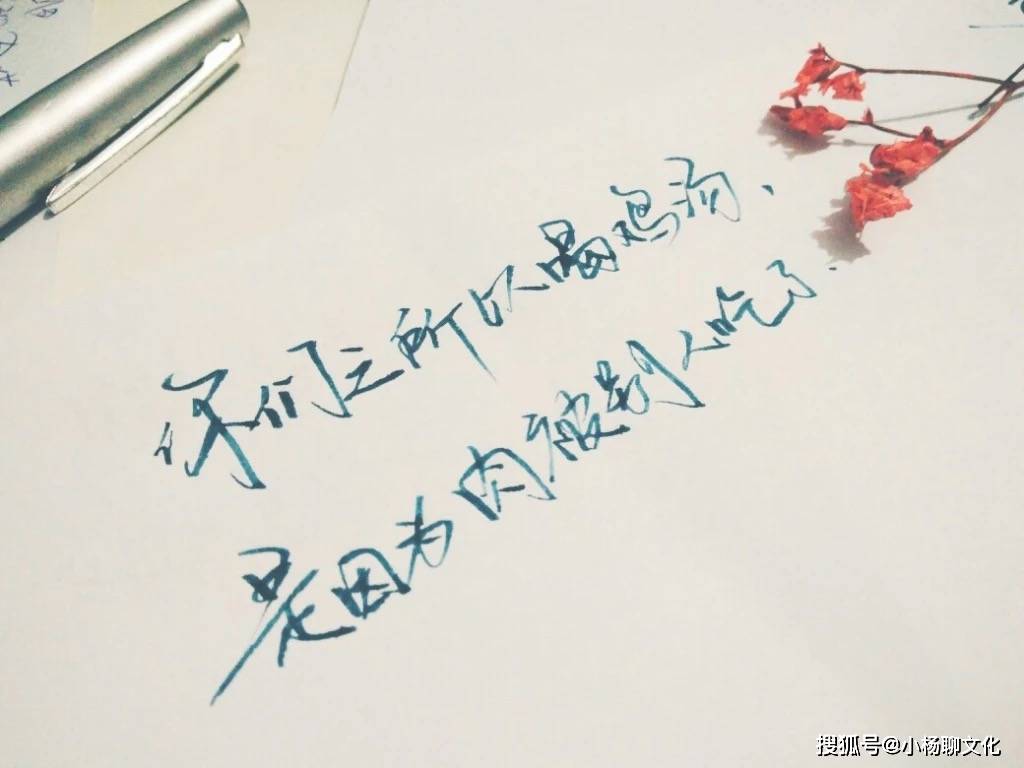 你们之所以喝鸡汤、
是因为肉被别人吃了.
搜狐号@小杨聊文化